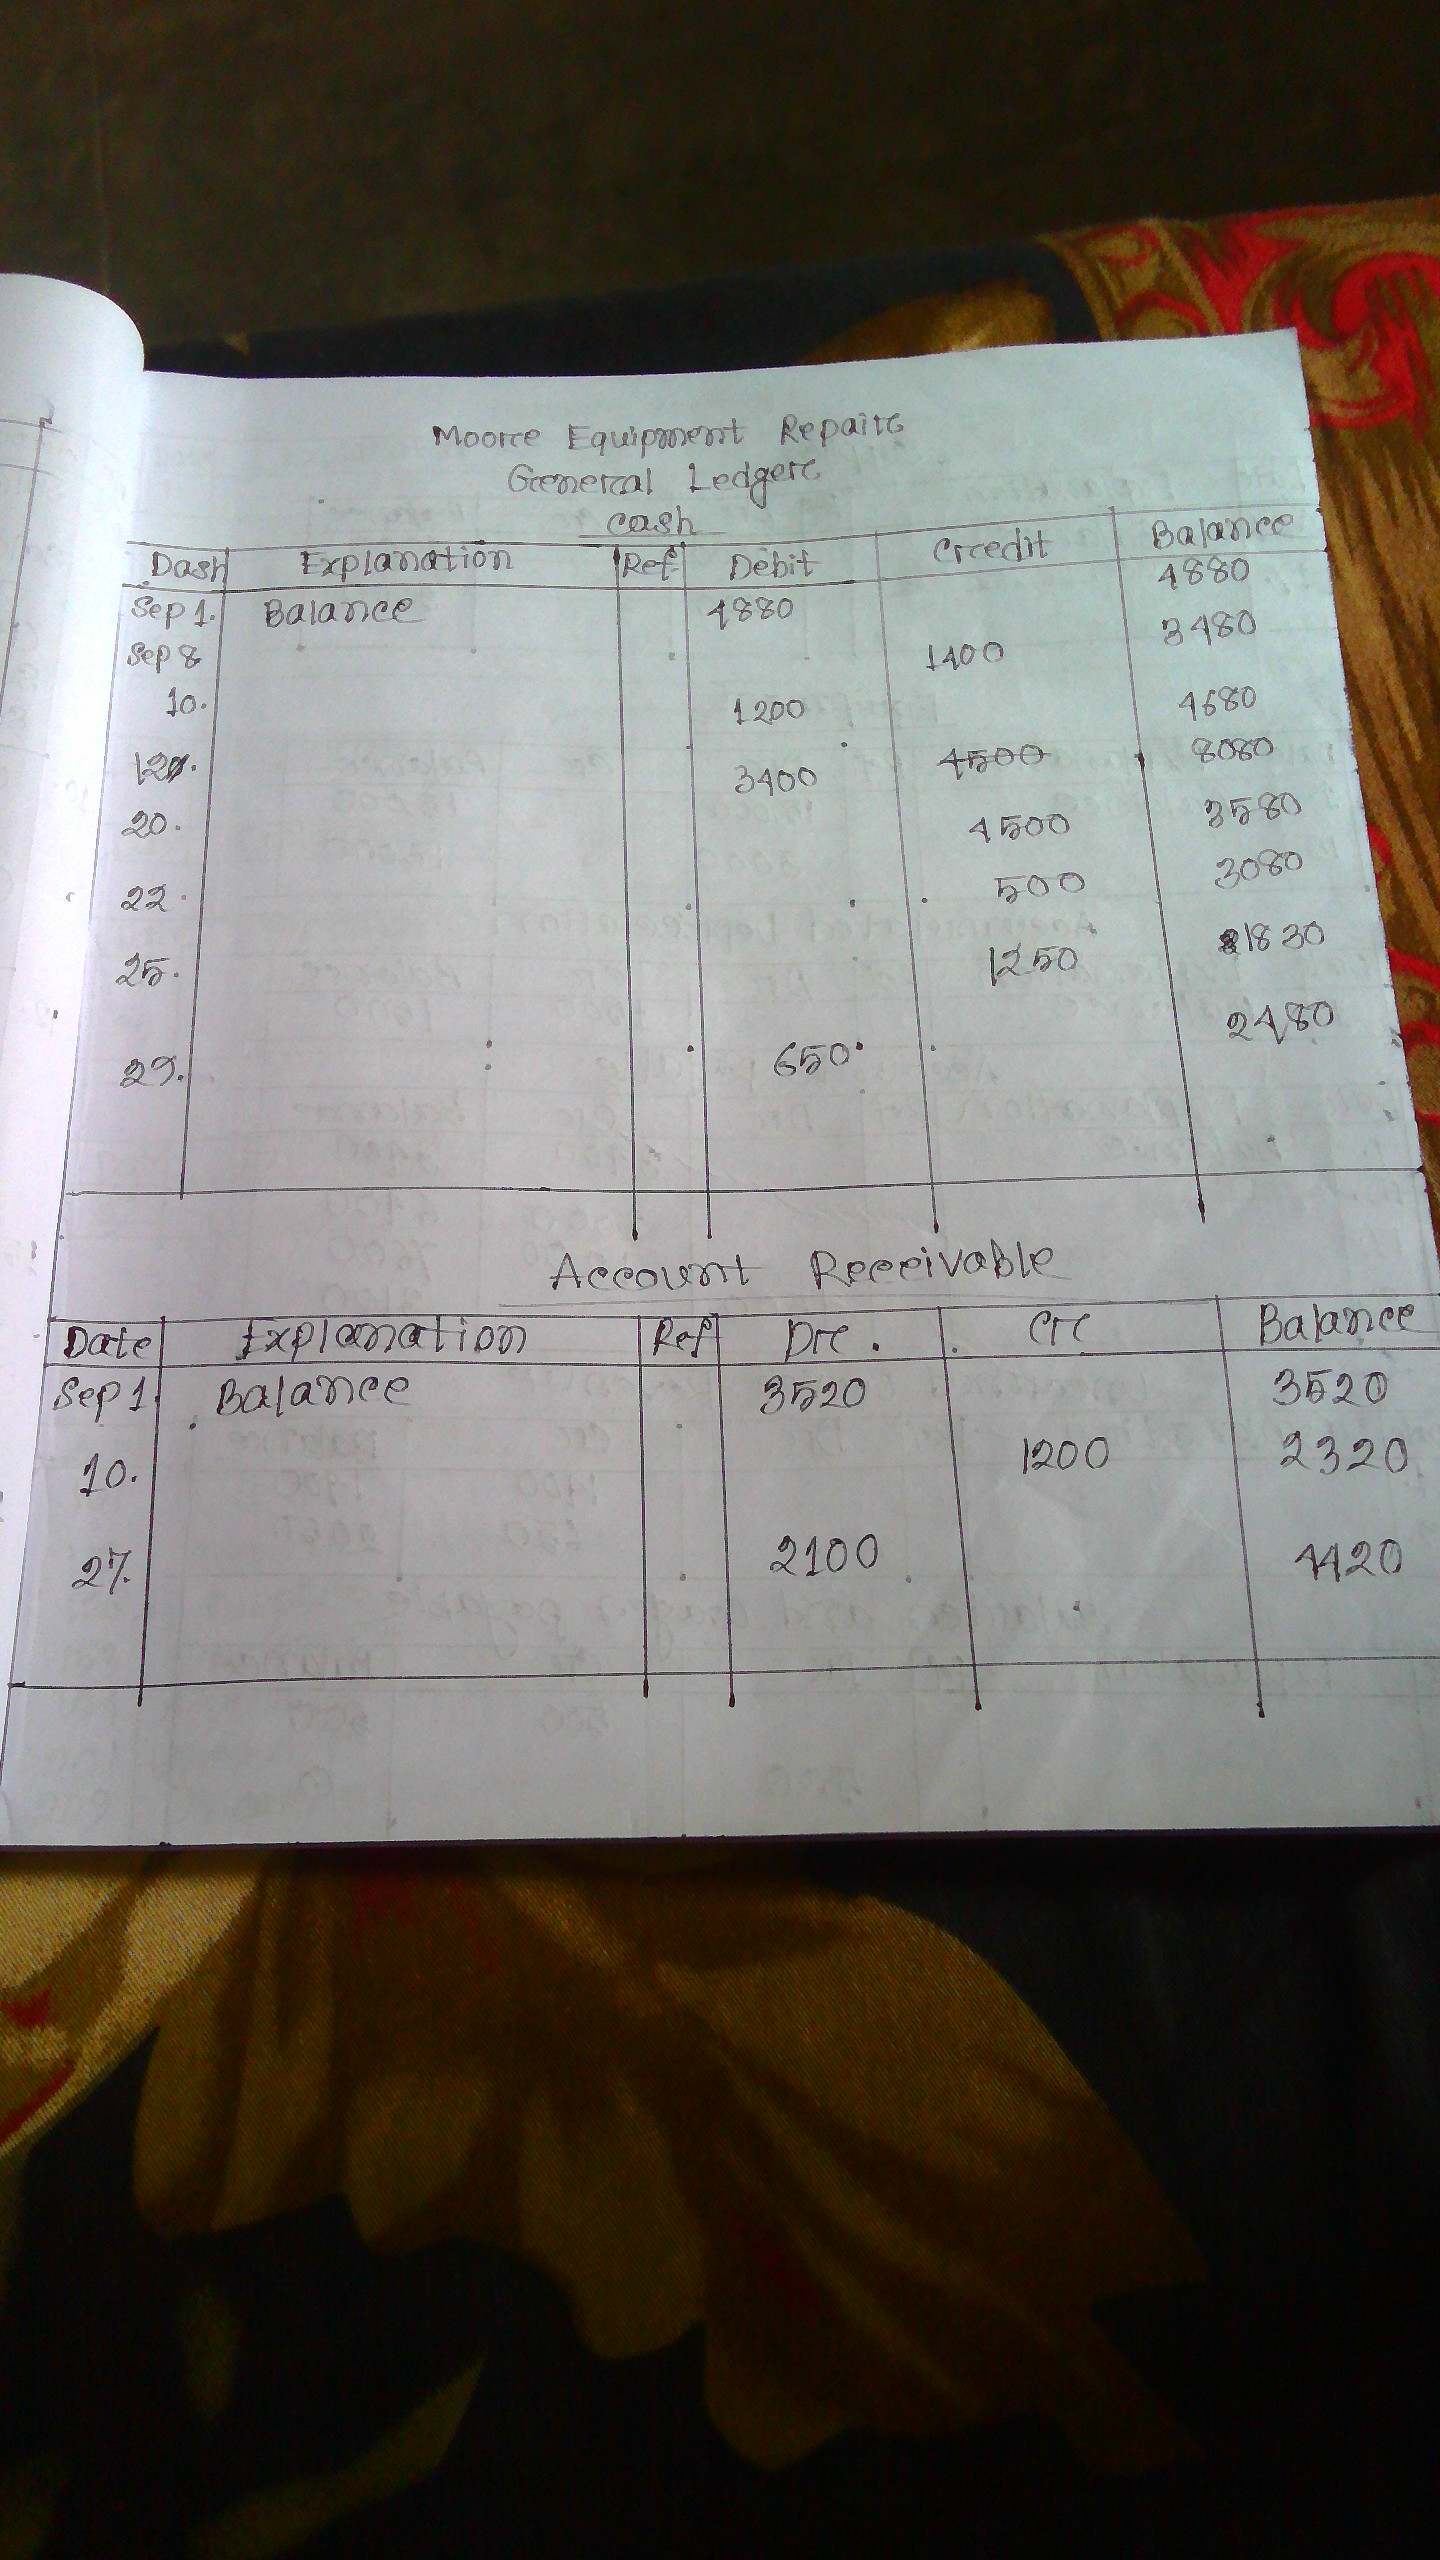 Moore Equipment Repair
General Ledger
cash
Dash Explanation Ref Debit Credit Balance
Sep 1. Balance 4880 4880
Sep 8 1400 3480
10. 1200 4680
12. 3400 4500 8080
20. 4500 3580
22. 500 3080
25. 1250 1830
29. 650 2480
Account Receivable
Date Explanation Ref Dr. Cr Balance
Sep 1. Balance 3520 3520
10. 1200 2320
27. 2100 4420